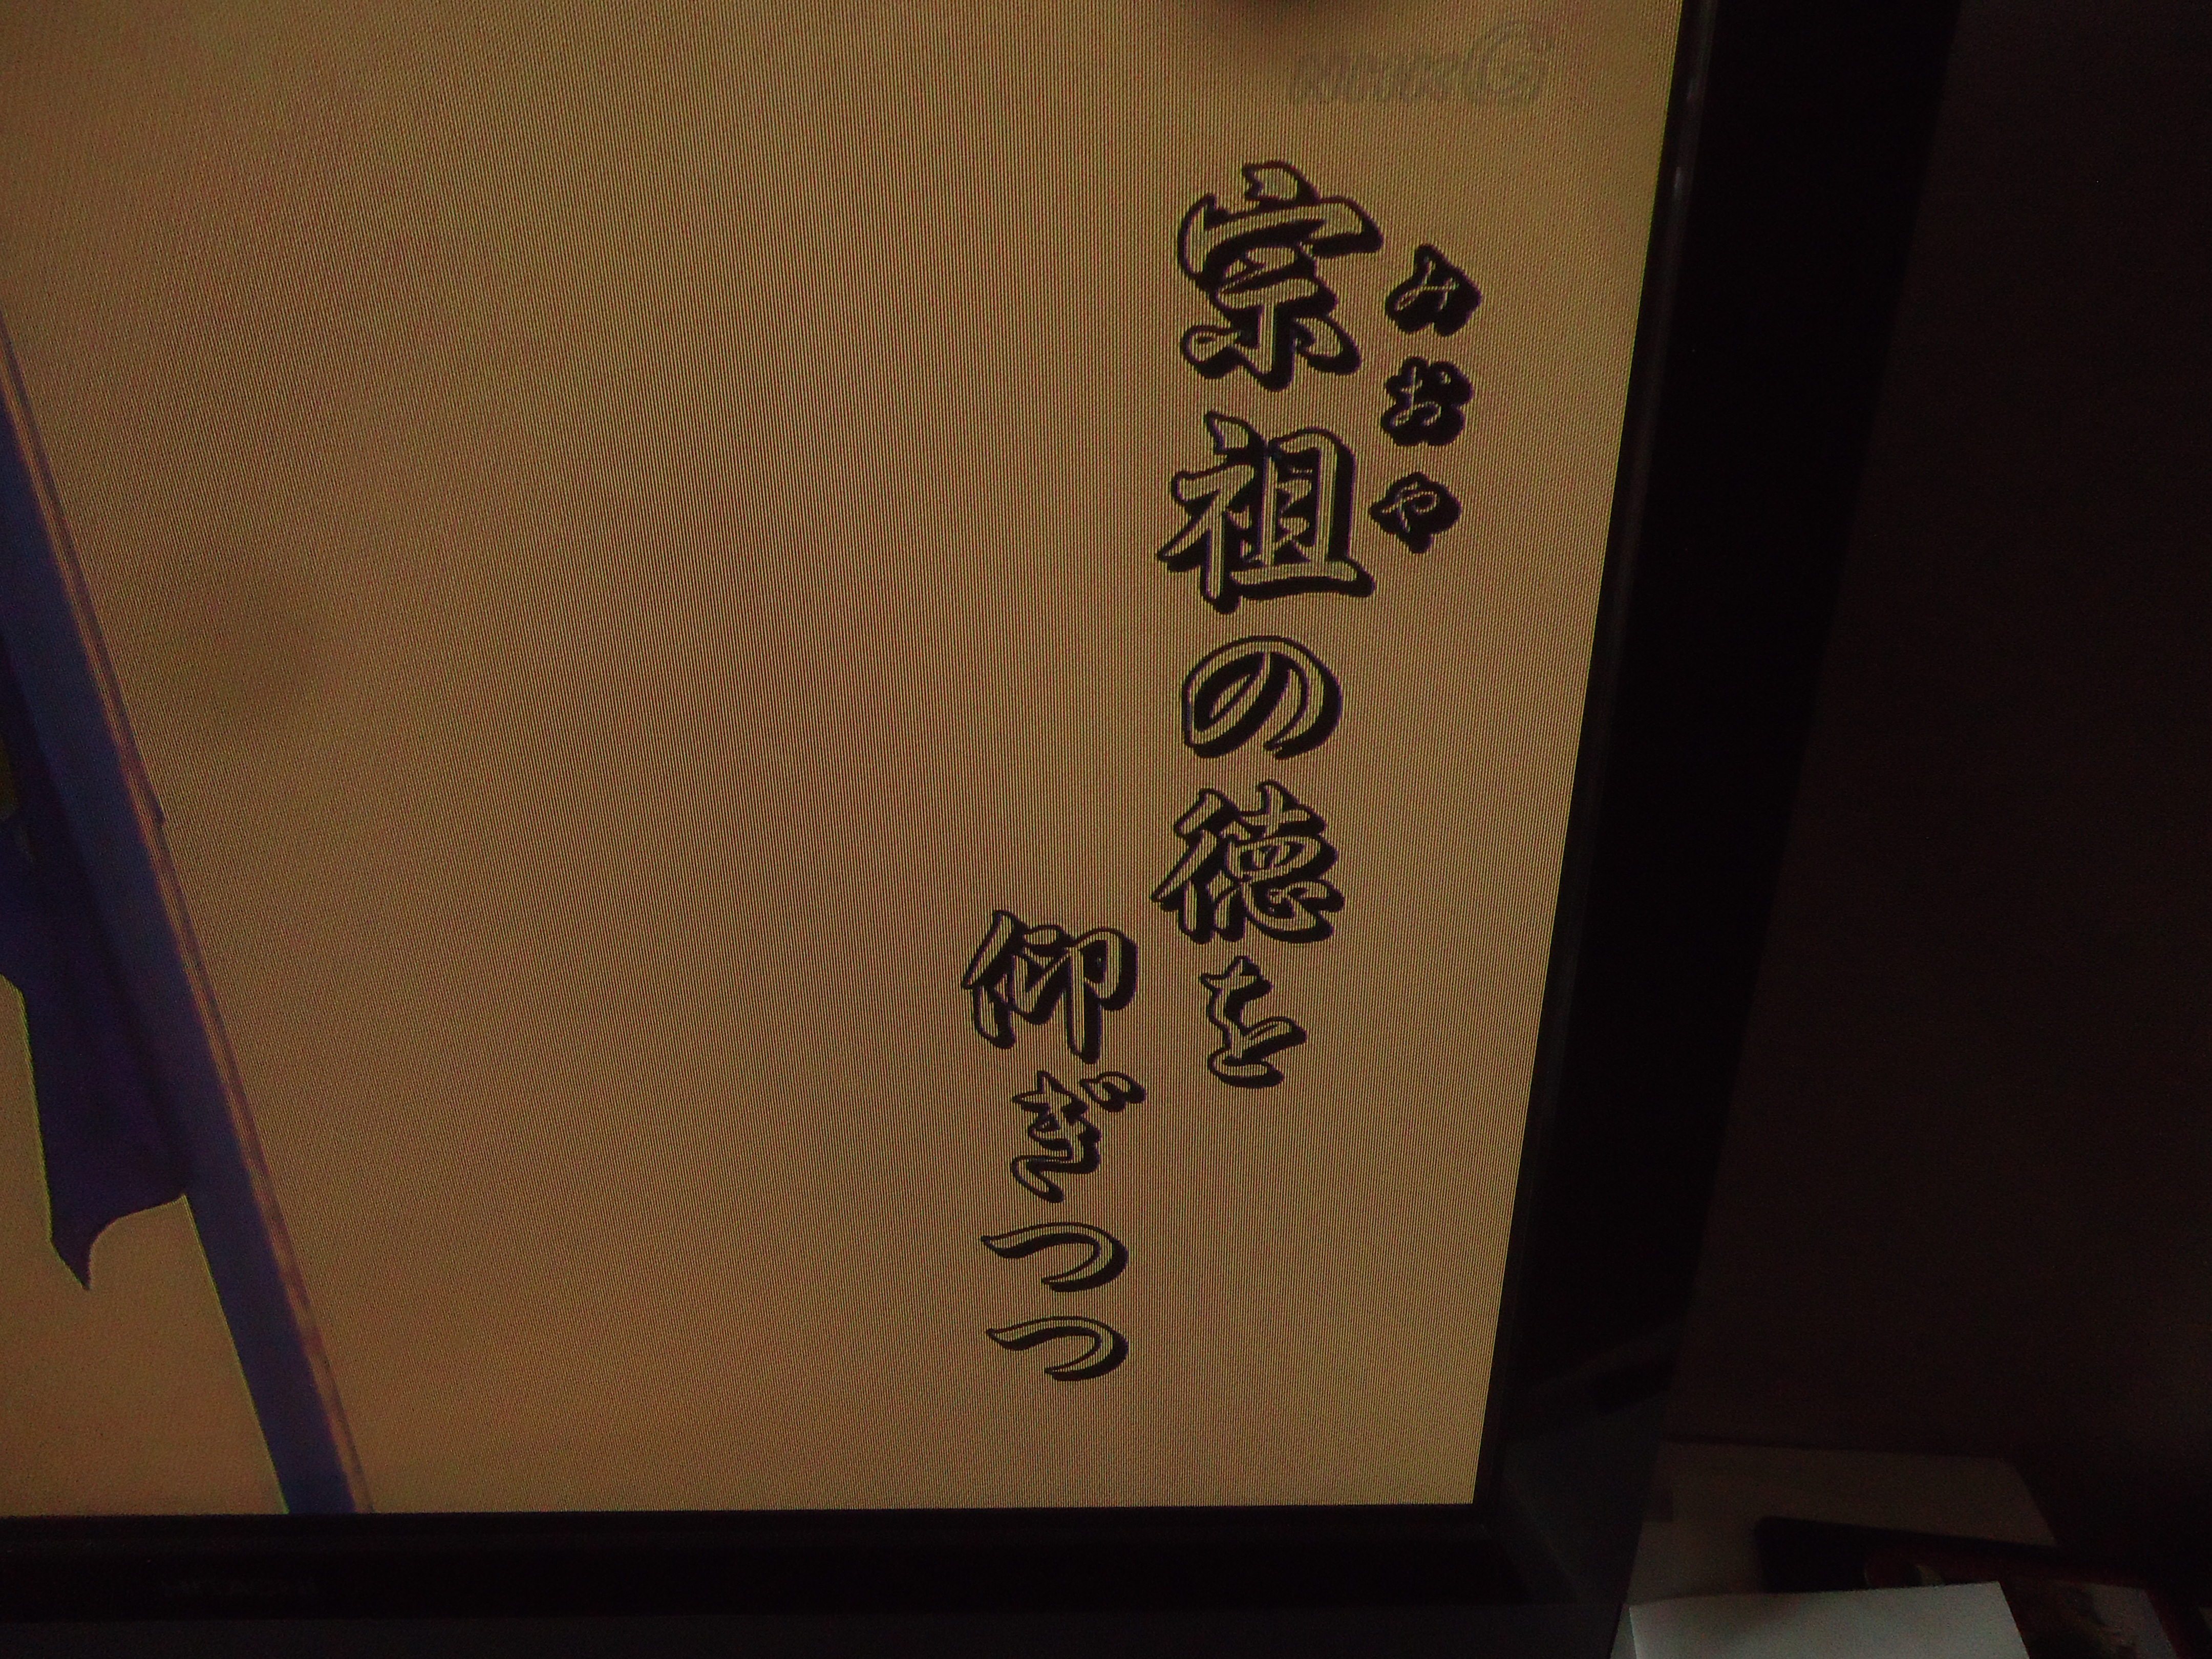 みおや
宗祖の徳を
仰ぎつつ